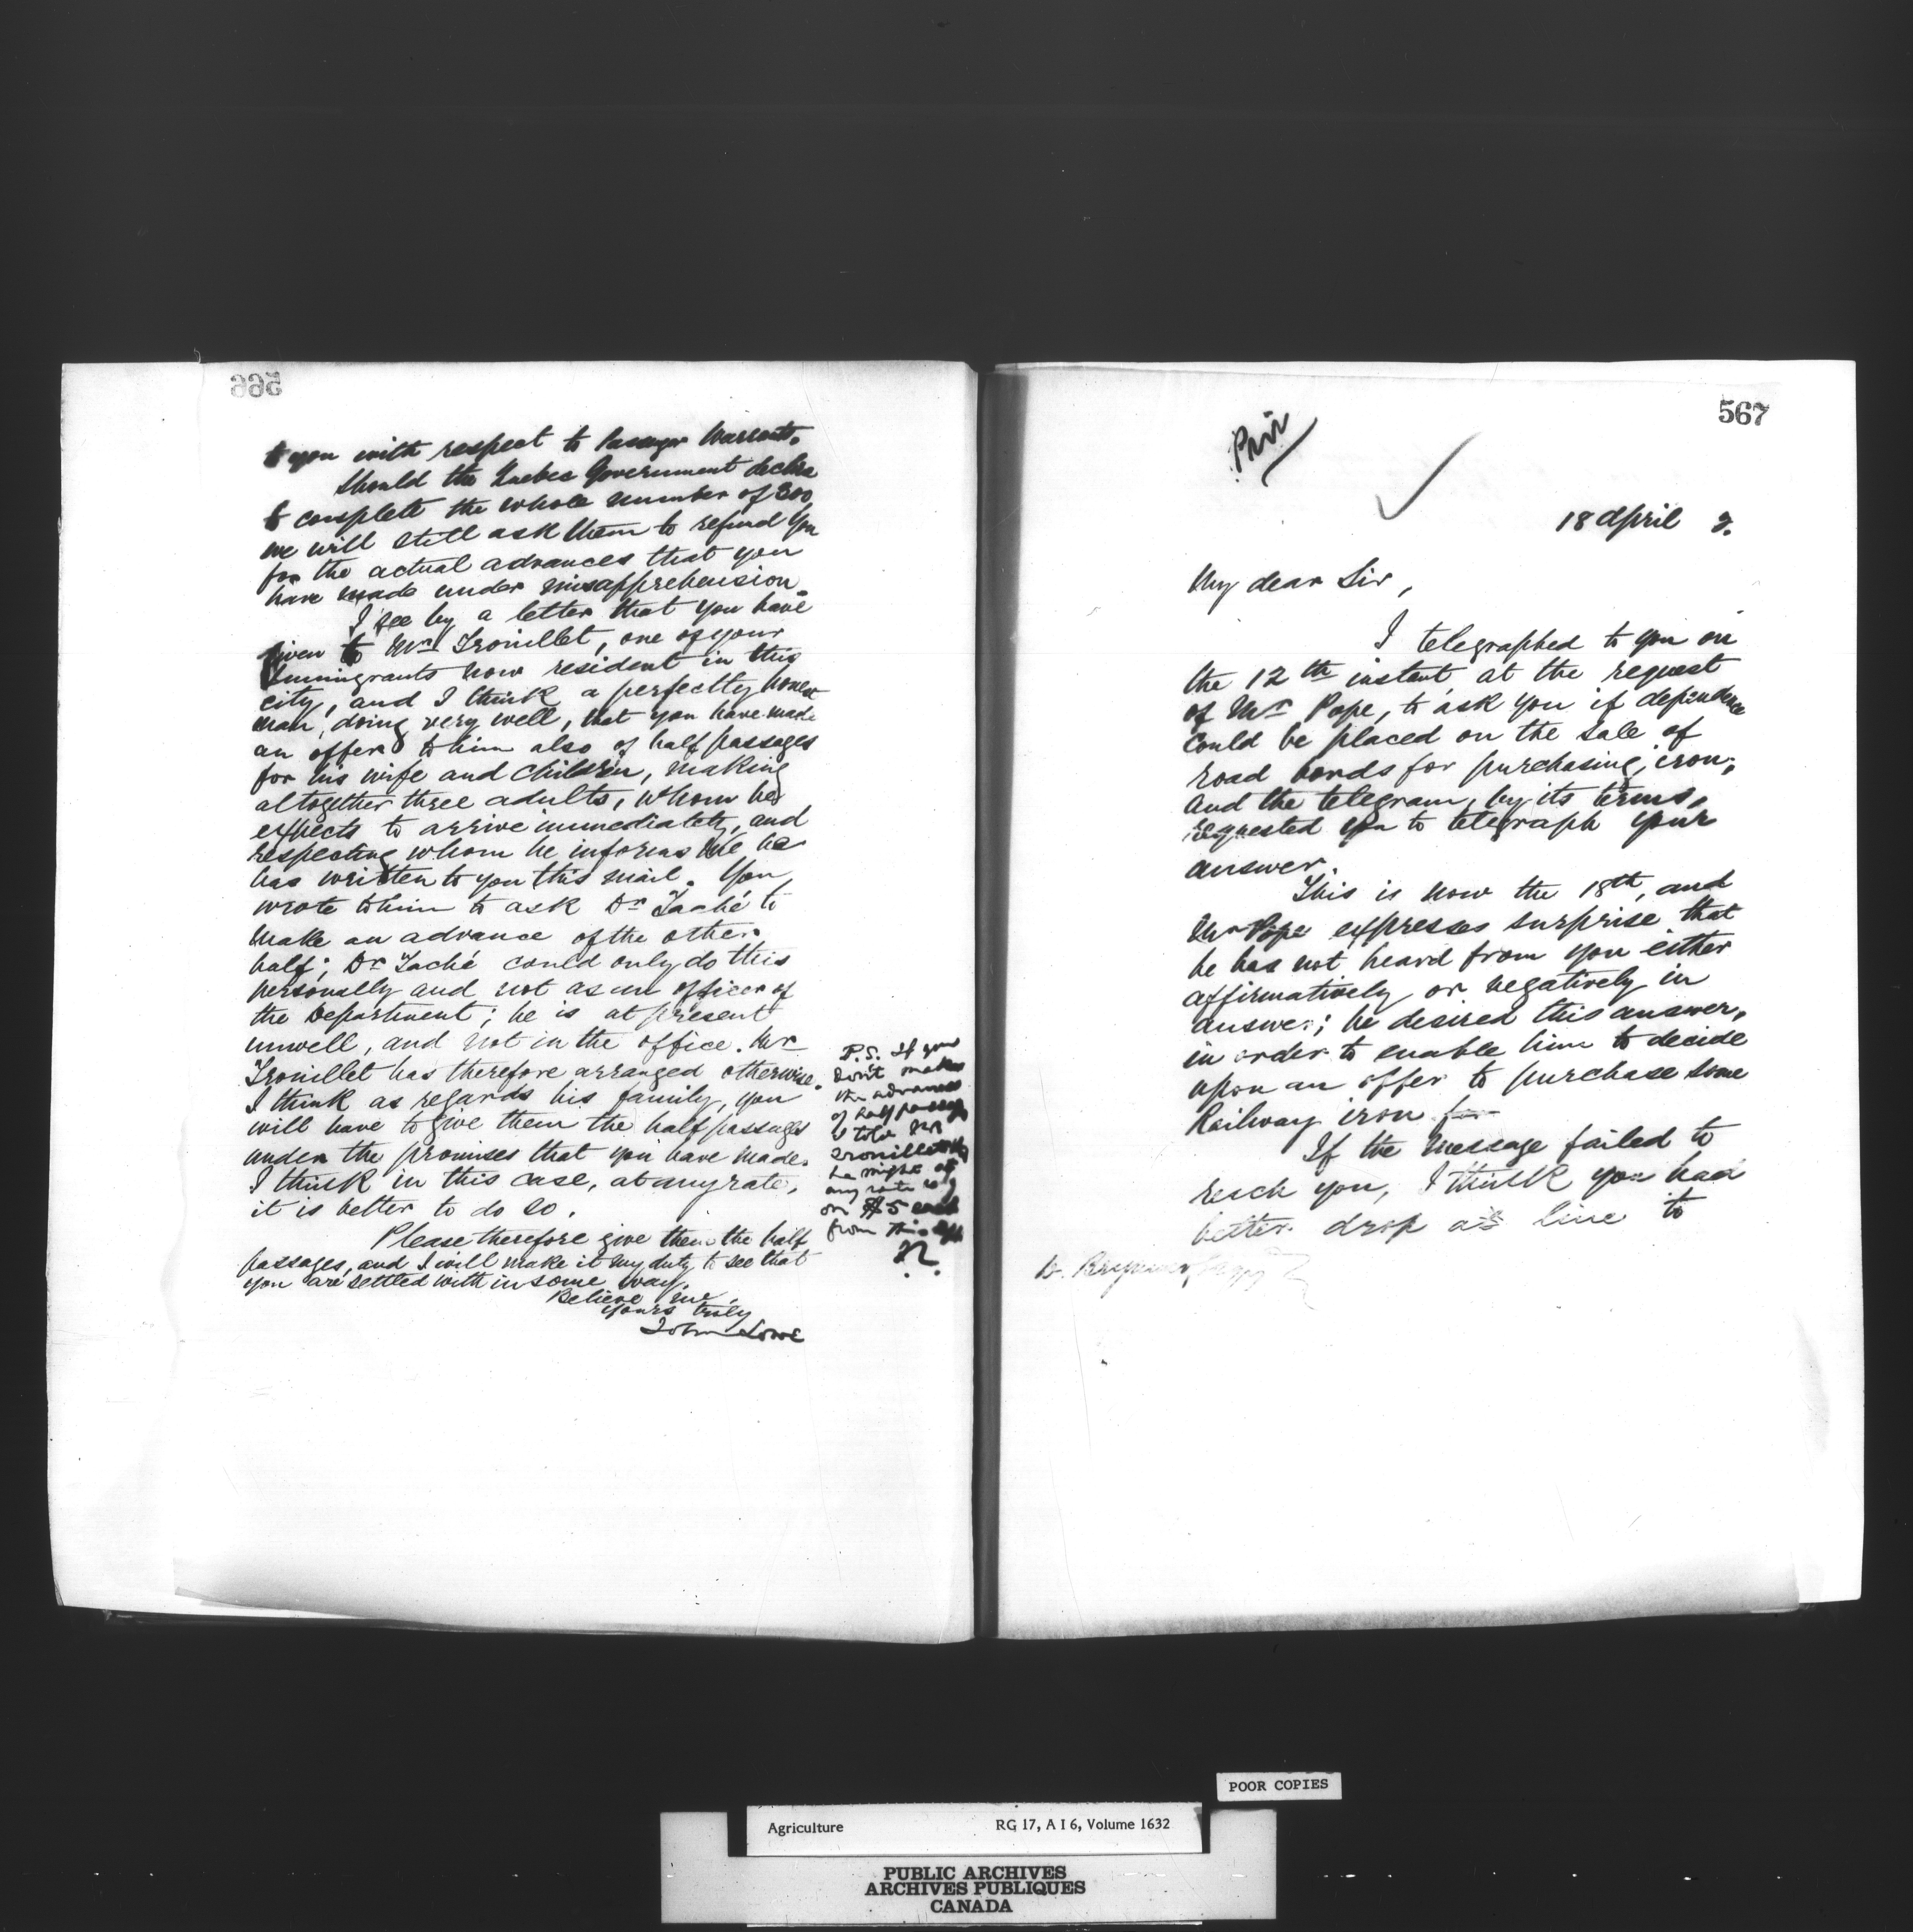 566
to you with respect to Passenger Warrants.
Should the Quebec Government decline
to complete the whole number of 300
we will still ask them to refund you
for the actual advances that you
have made under misapprehension.
I see by a letter that you have
given to Mr Trouillet, one of your
Immigrants now resident in this
city, and I think a perfectly honest
man, doing very well, that you have made
an offer to him also of half passages
for his wife and children, making
altogether three adults, whom he
expects to arrive immediately, and
respecting whom he informs me he
has written to you this mail. You
wrote to him to ask Dr Taché to
make an advance of the other
half; Dr Taché could only do this
personally and not as an officer of
the Department; he is at present
unwell, and not in the office. Mr
Trouillet has therefore arranged otherwise.
I think as regards his family, you
will have to give them the half passages
under the promises that you have made.
I think in this case, at any rate,
it is better to do so.
Please therefore give them the half
passages, and I will make it my duty to see that
you are settled with in some way.
Believe me
yours truly
John Lowe
P.S. If you
don't make
the advances
of half passage
I told Mr
Trouillet
he might at
any rate
on $5 each
from this
567
Priv
18 April 3.
My dear Sir,
I telegraphed to you on
the 12th instant at the request
of Mr Pope, to ask you if dependence
could be placed on the sale of
road bonds for purchasing iron;
and the telegram, by its terms,
requested you to telegraph your
answer.
This is now the 18th, and
Mr Pope expresses surprise that
he has not heard from you either
affirmatively or negatively in
answer; he desired this answer,
in order to enable him to decide
upon an offer to purchase some
Railway iron for
If the message failed to
reach you, I think you had
better drop a line to
POOR COPIES
Agriculture RG 17, A I 6, Volume 1632
PUBLIC ARCHIVES
ARCHIVES PUBLIQUES
CANADA